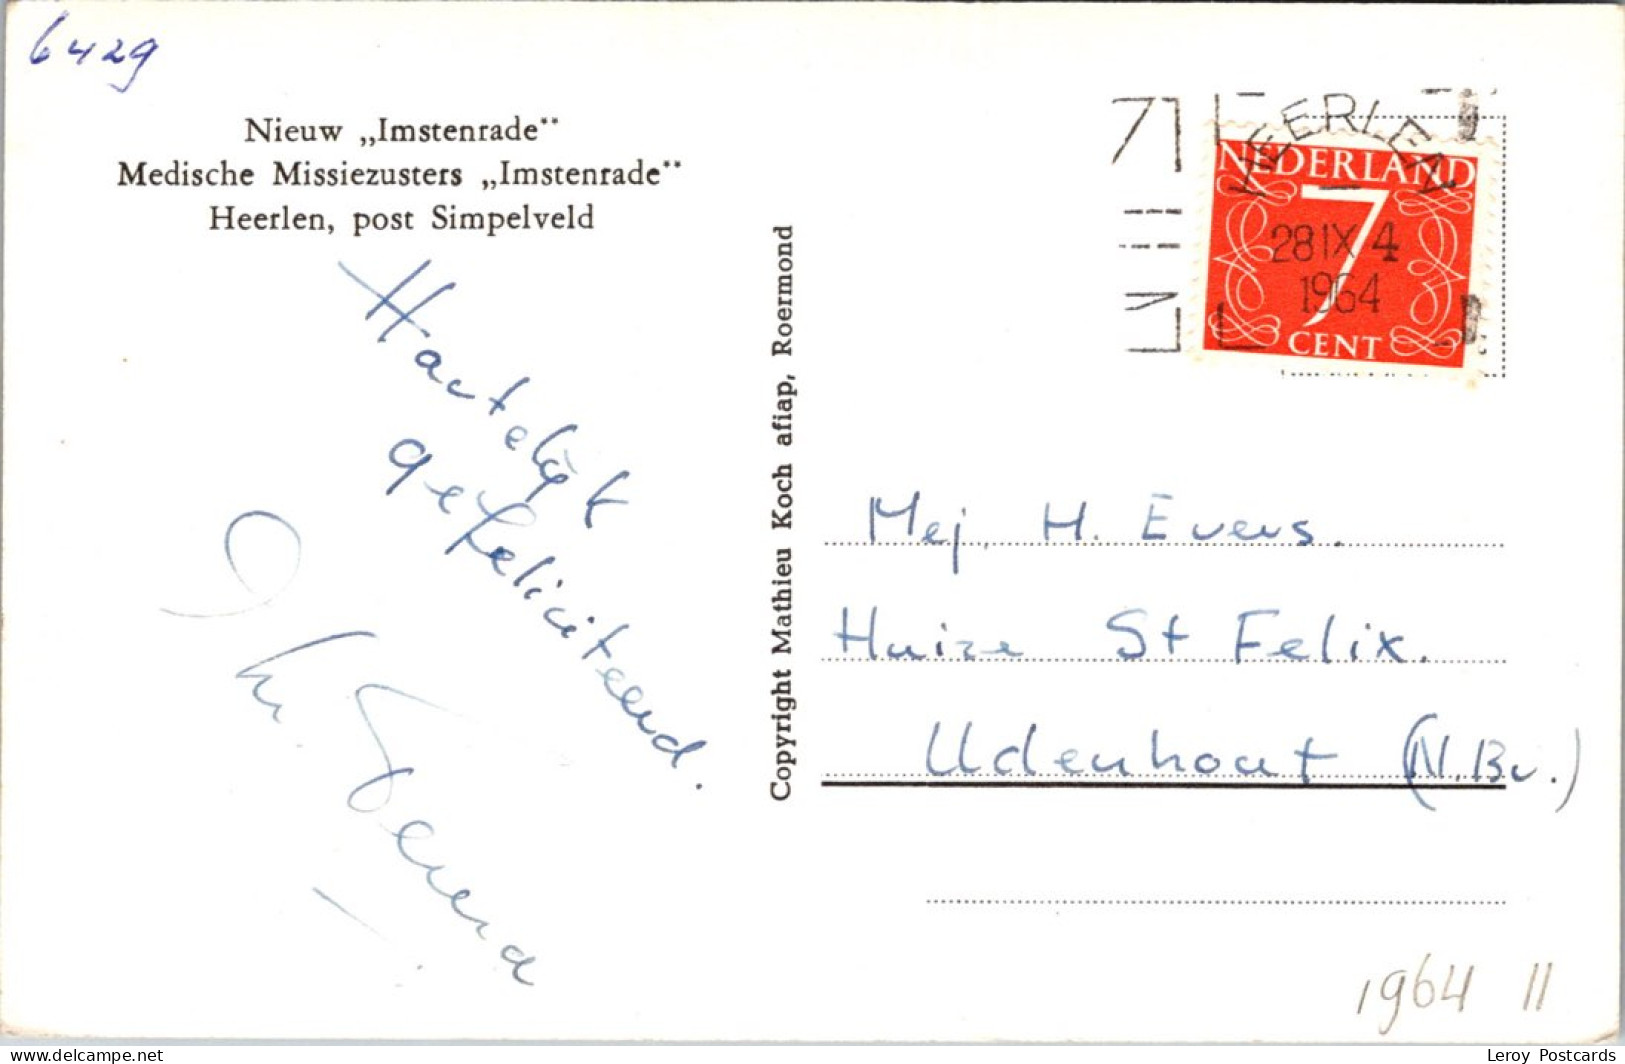 6429
Nieuw „Imstenrade”
Medische Missiezusters „Imstenrade”
Heerlen, post Simpelveld
Hartelijk
gefeliciteerd.
Copyright Mathieu Koch afiap, Roermond
HEERLEN
28 IX 4
1964
NEDERLAND
7
CENT
Mej. H. Evers.
Huize St Felix.
Udenhout (N.Br.)
1964 11
delcampe.net
Leroy Postcards